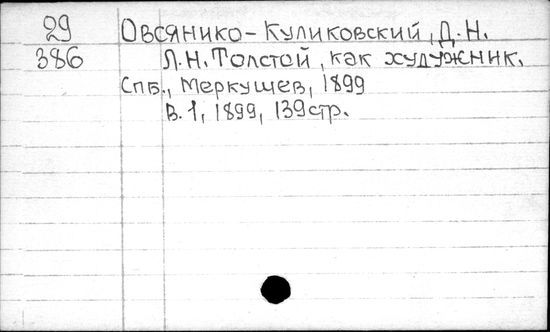 29 Овсянико-Куликовский, Д.Н.
386 Л.Н.Толстой, как худужник.
Спб., Меркушев, 1899
В.1, 1899, 139стр.